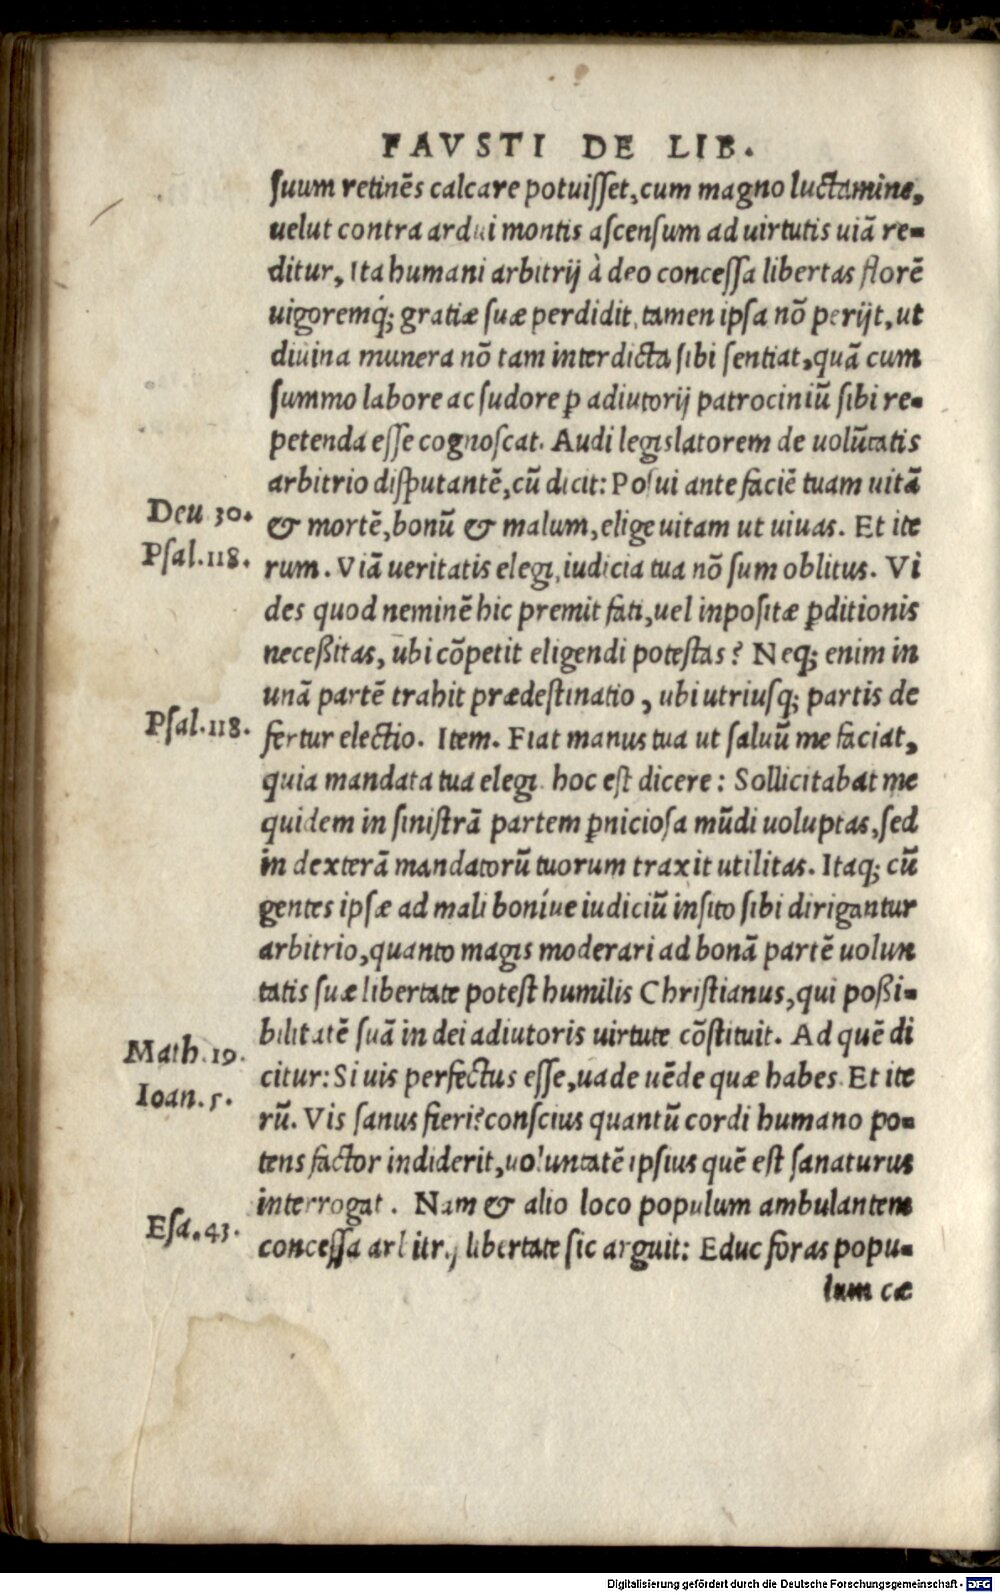 FAVSTI DE LIB.
suum retinēs calcare potuisset, cum magno luctamine,
uelut contra ardui montis ascensum ad uirtutis uiā re-
ditur, Ita humani arbitrij à deo concessa libertas florē
uigoremq́; gratiæ suæ perdidit, tamen ipsa nō perijt, ut
diuina munera nō tam interdicta sibi sentiat, quā cum
summo labore ac sudore ꝑ adiutorij patrociniū sibi re-
petenda esse cognoscat. Audi legislatorem de uolūtatis
arbitrio disputantē, cū dicit: Posui ante faciē tuam uitā
Deu 30.
& mortē, bonū & malum, elige uitam ut uiuas. Et ite
Psal.118.
rum. Viā ueritatis elegi, iudicia tua nō sum oblitus. Vi
des quod neminē hic premit fati, uel inpositæ ꝑditionis
neceßitas, ubi cōpetit eligendi potestas? Neq; enim in
unā partē trahit prædestinatio, ubi utriusq; partis de
Psal.118.
fertur electio. Item. Fiat manus tua ut saluū me faciat,
quia mandata tua elegi. hoc est dicere: Sollicitabat me
quidem in sinistrā partem ꝑniciosa mūdi uoluptas, sed
in dexterā mandatorū tuorum traxit utilitas. Itaq; cū
gentes ipsæ ad mali boníue iudiciū insito sibi dirigantur
arbitrio, quanto magis moderari ad bonā partē uolun
tatis suæ libertate potest humilis Christianus, qui poßi-
bilitatē suā in dei adiutoris uirtute cōstituit. Ad quē di
Math.19.
citur: Si uis perfectus esse, uade uēde quæ habes. Et ite
Ioan.5.
rū. Vis sanus fieri? conscius quantū cordi humano po-
tens factor indiderit, uoluntatē ipsius quē est sanaturus
interrogat. Nam & alio loco populum ambulantem
Esa.43.
concessa arbitrij libertate sic arguit: Educ foras popu-
lum cæ
Digitalisierung gefördert durch die Deutsche Forschungsgemeinschaft - DFG